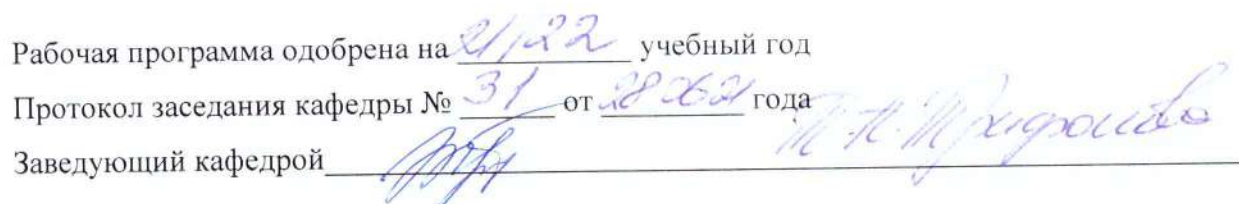 Рабочая программа одобрена на 21/22 учебный год
Протокол заседания кафедры № 31 от года
Заведующий кафедрой Трифонова